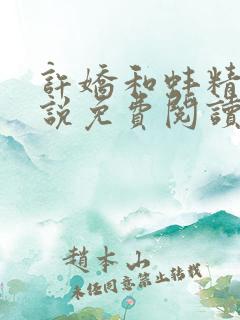 許嬌和蚌精
說免費閱讀
趙本山
未經同意禁止轉載